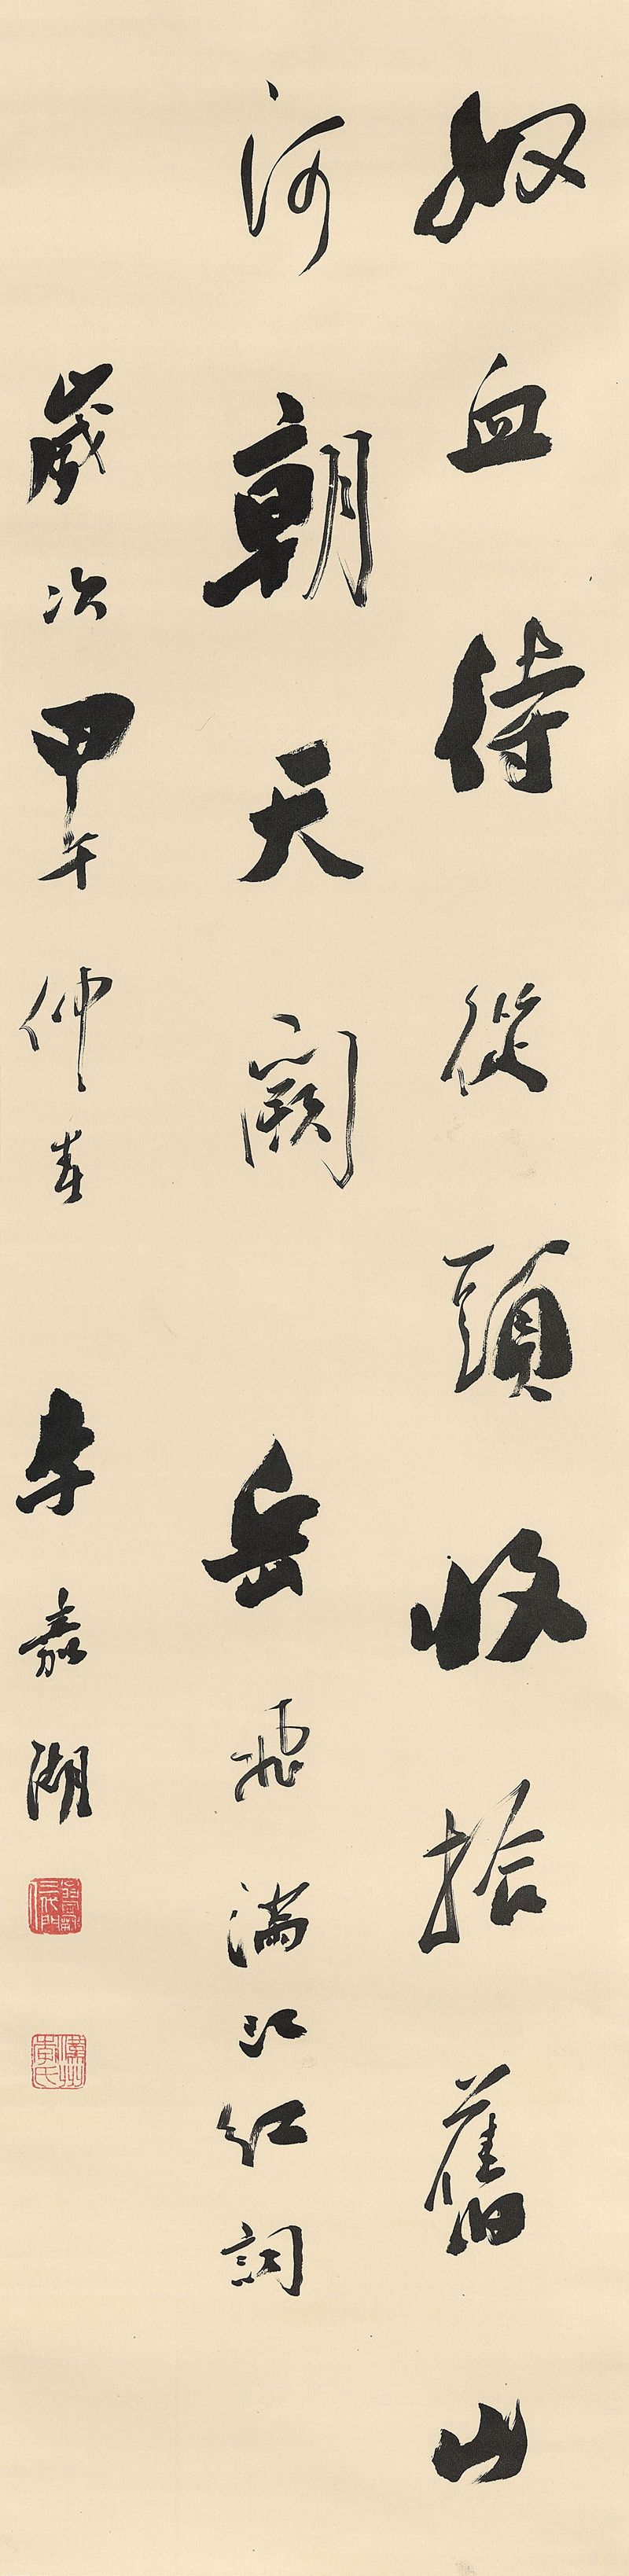 奴血待從頭收拾舊山
河朝天闕岳飛滿江紅詞
歲次甲午仲春李嘉湖